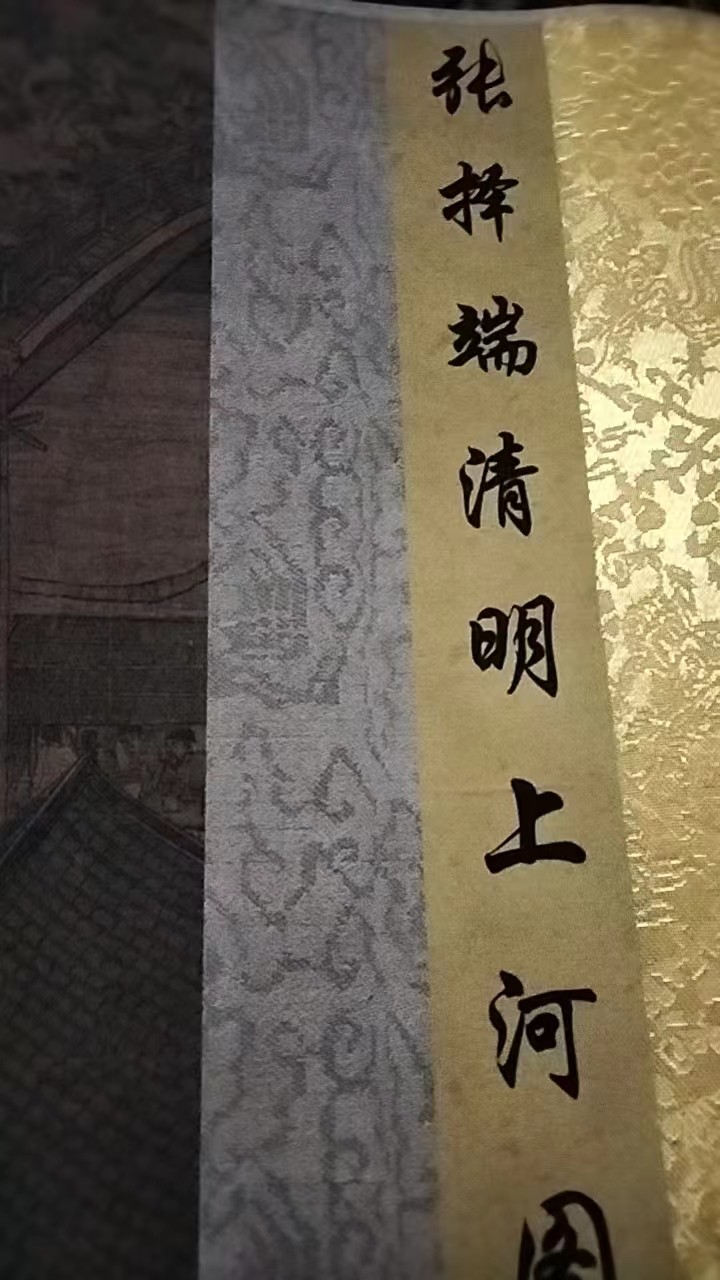 张择端清明上河图